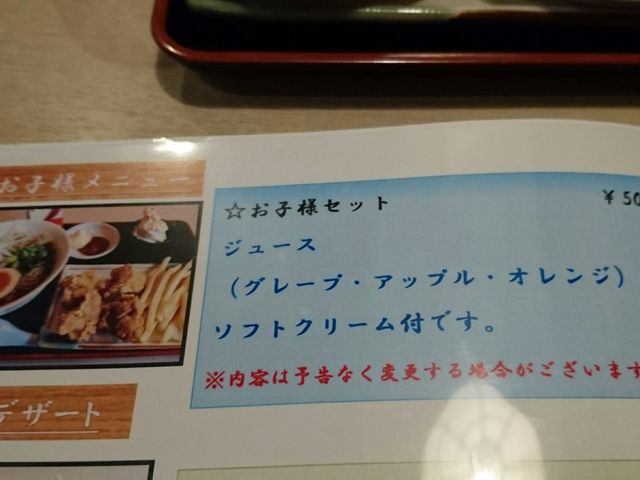 お子様メニュー
☆お子様セット ¥50
ジュース
(グレープ・アップル・オレンジ)
ソフトクリーム付です。
※内容は予告なく変更する場合がございます
デザート